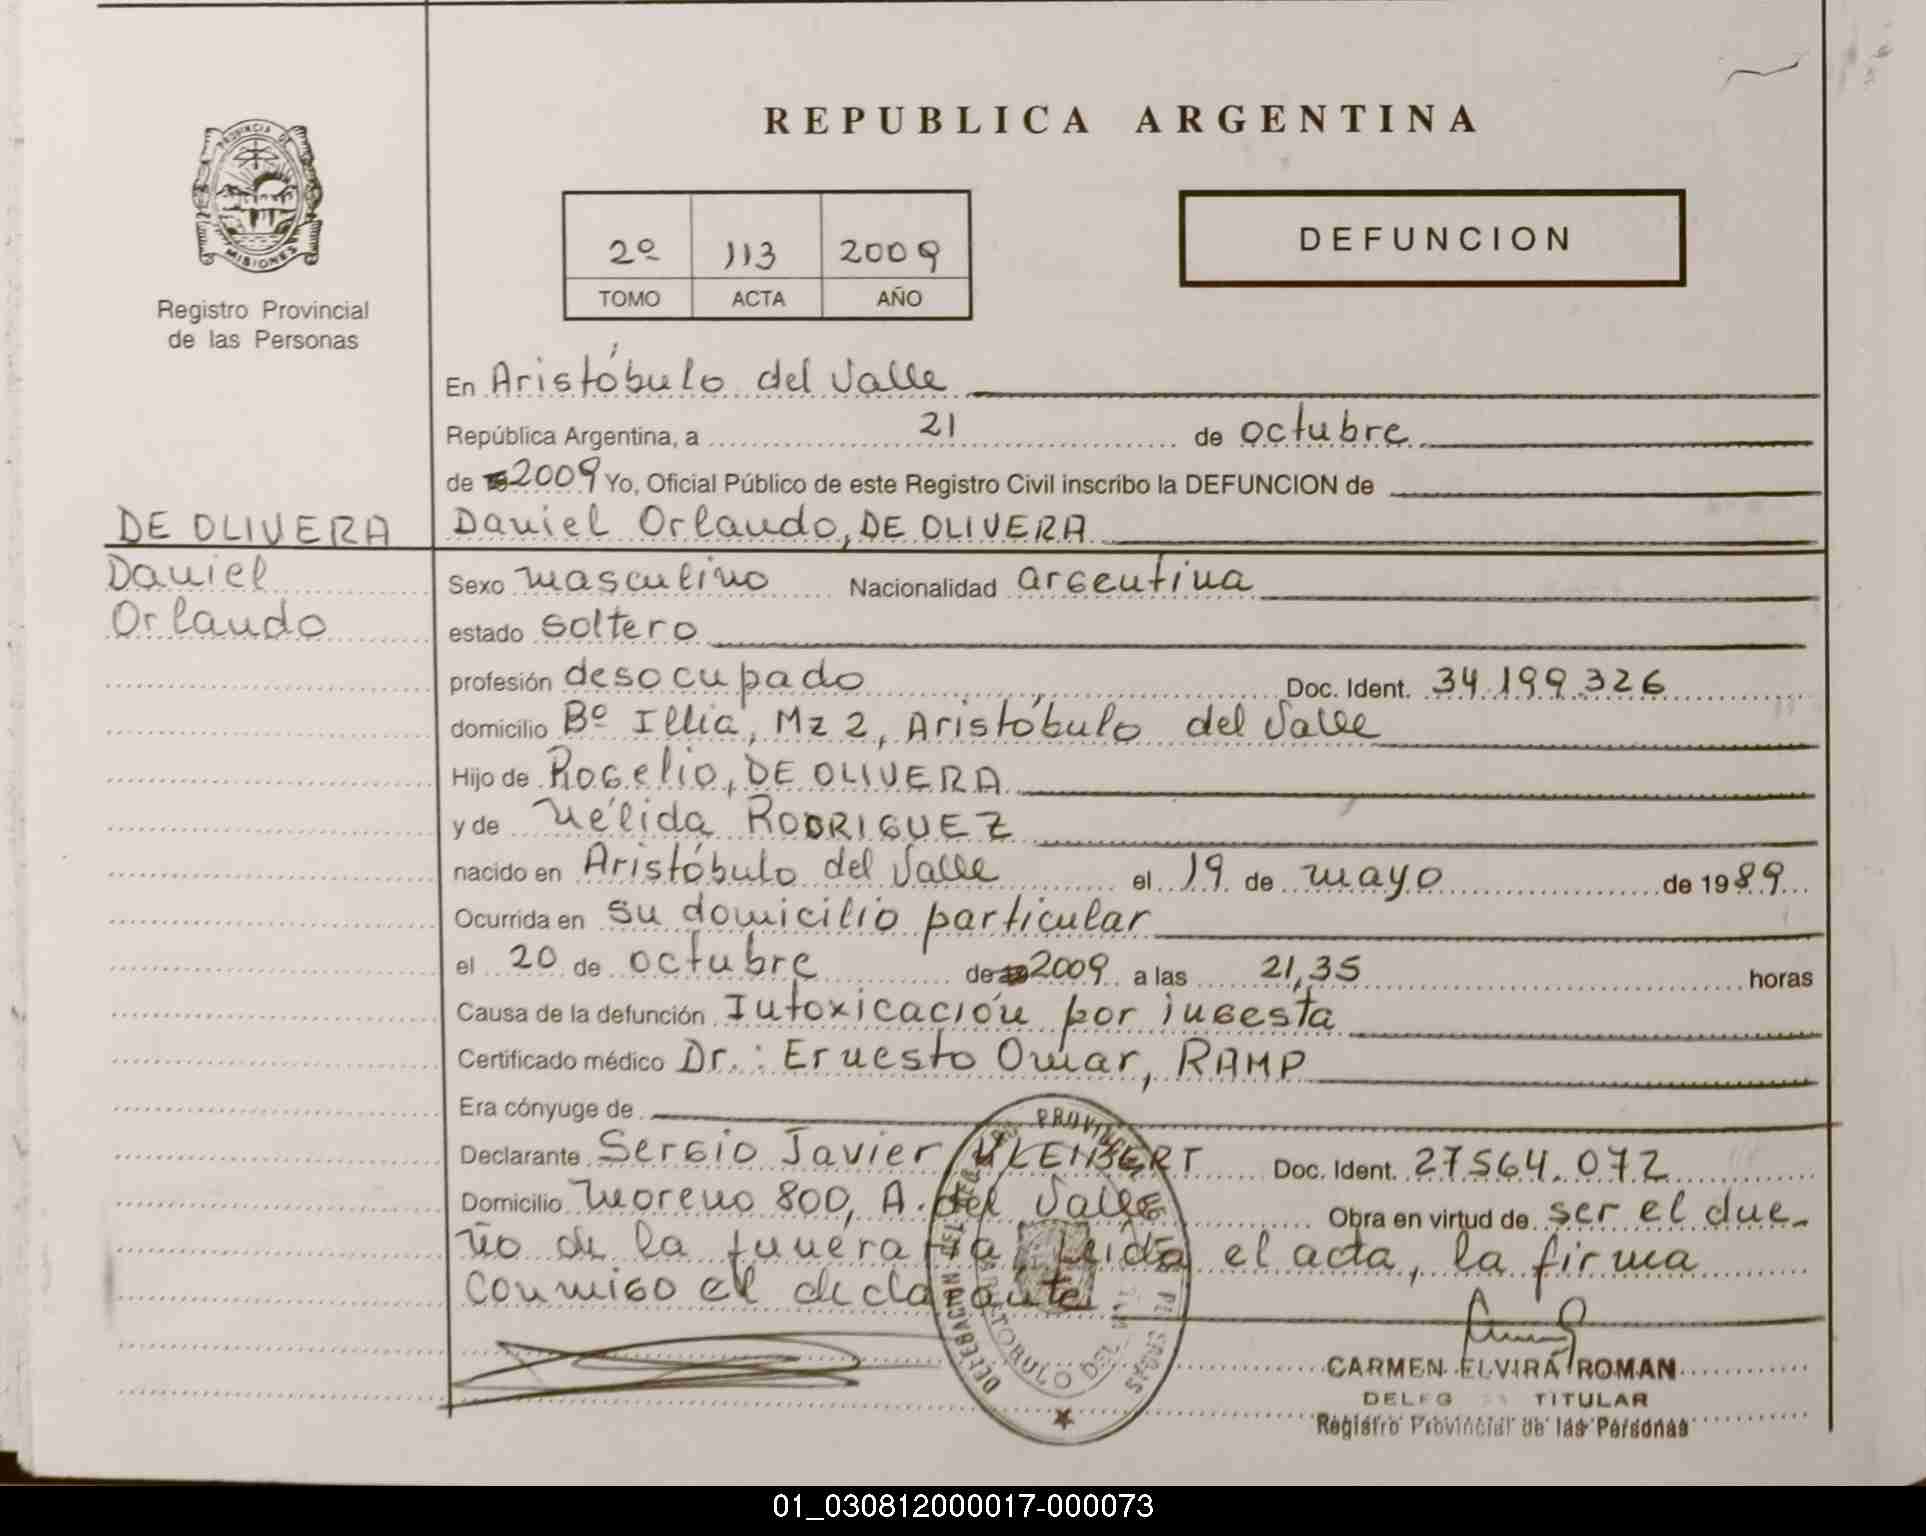 REPUBLICA ARGENTINA
PROVINCIA DE
MISIONES
Registro Provincial
de las Personas
2º 113 2009
TOMO ACTA AÑO
DEFUNCION
En Aristóbulo del Valle
República Argentina, a 21 de octubre
de 2009 Yo, Oficial Público de este Registro Civil inscribo la DEFUNCION de
DE OLIVERA
Daniel
Orlando
Daniel Orlando, DE OLIVERA
Sexo masculino Nacionalidad argentina
estado soltero
profesión desocupado Doc. Ident. 34.199.326
domicilio Bº Illia, Mz 2, Aristóbulo del Valle
Hijo de Rogelio, DE OLIVERA
y de Nélida RODRIGUEZ
nacido en Aristóbulo del Valle el 19 de mayo de 1989
Ocurrida en su domicilio particular
el 20 de octubre de 2009 a las 21,35 horas
Causa de la defunción Intoxicación por ingesta
Certificado médico Dr.: Ernesto Omar, RAMP
Era cónyuge de
Declarante Sergio Javier Doc. Ident. 27564.072
Domicilio Moreno 800, A. del Valle Obra en virtud de ser el due-
ño de la funeraria Leida el acta, la firma
conmigo el declarante
CARMEN ELVIRA ROMAN
TITULAR
Registro Provincial de las Personas
DELEGACION
ARISTOBULO DEL
01_030812000017-000073